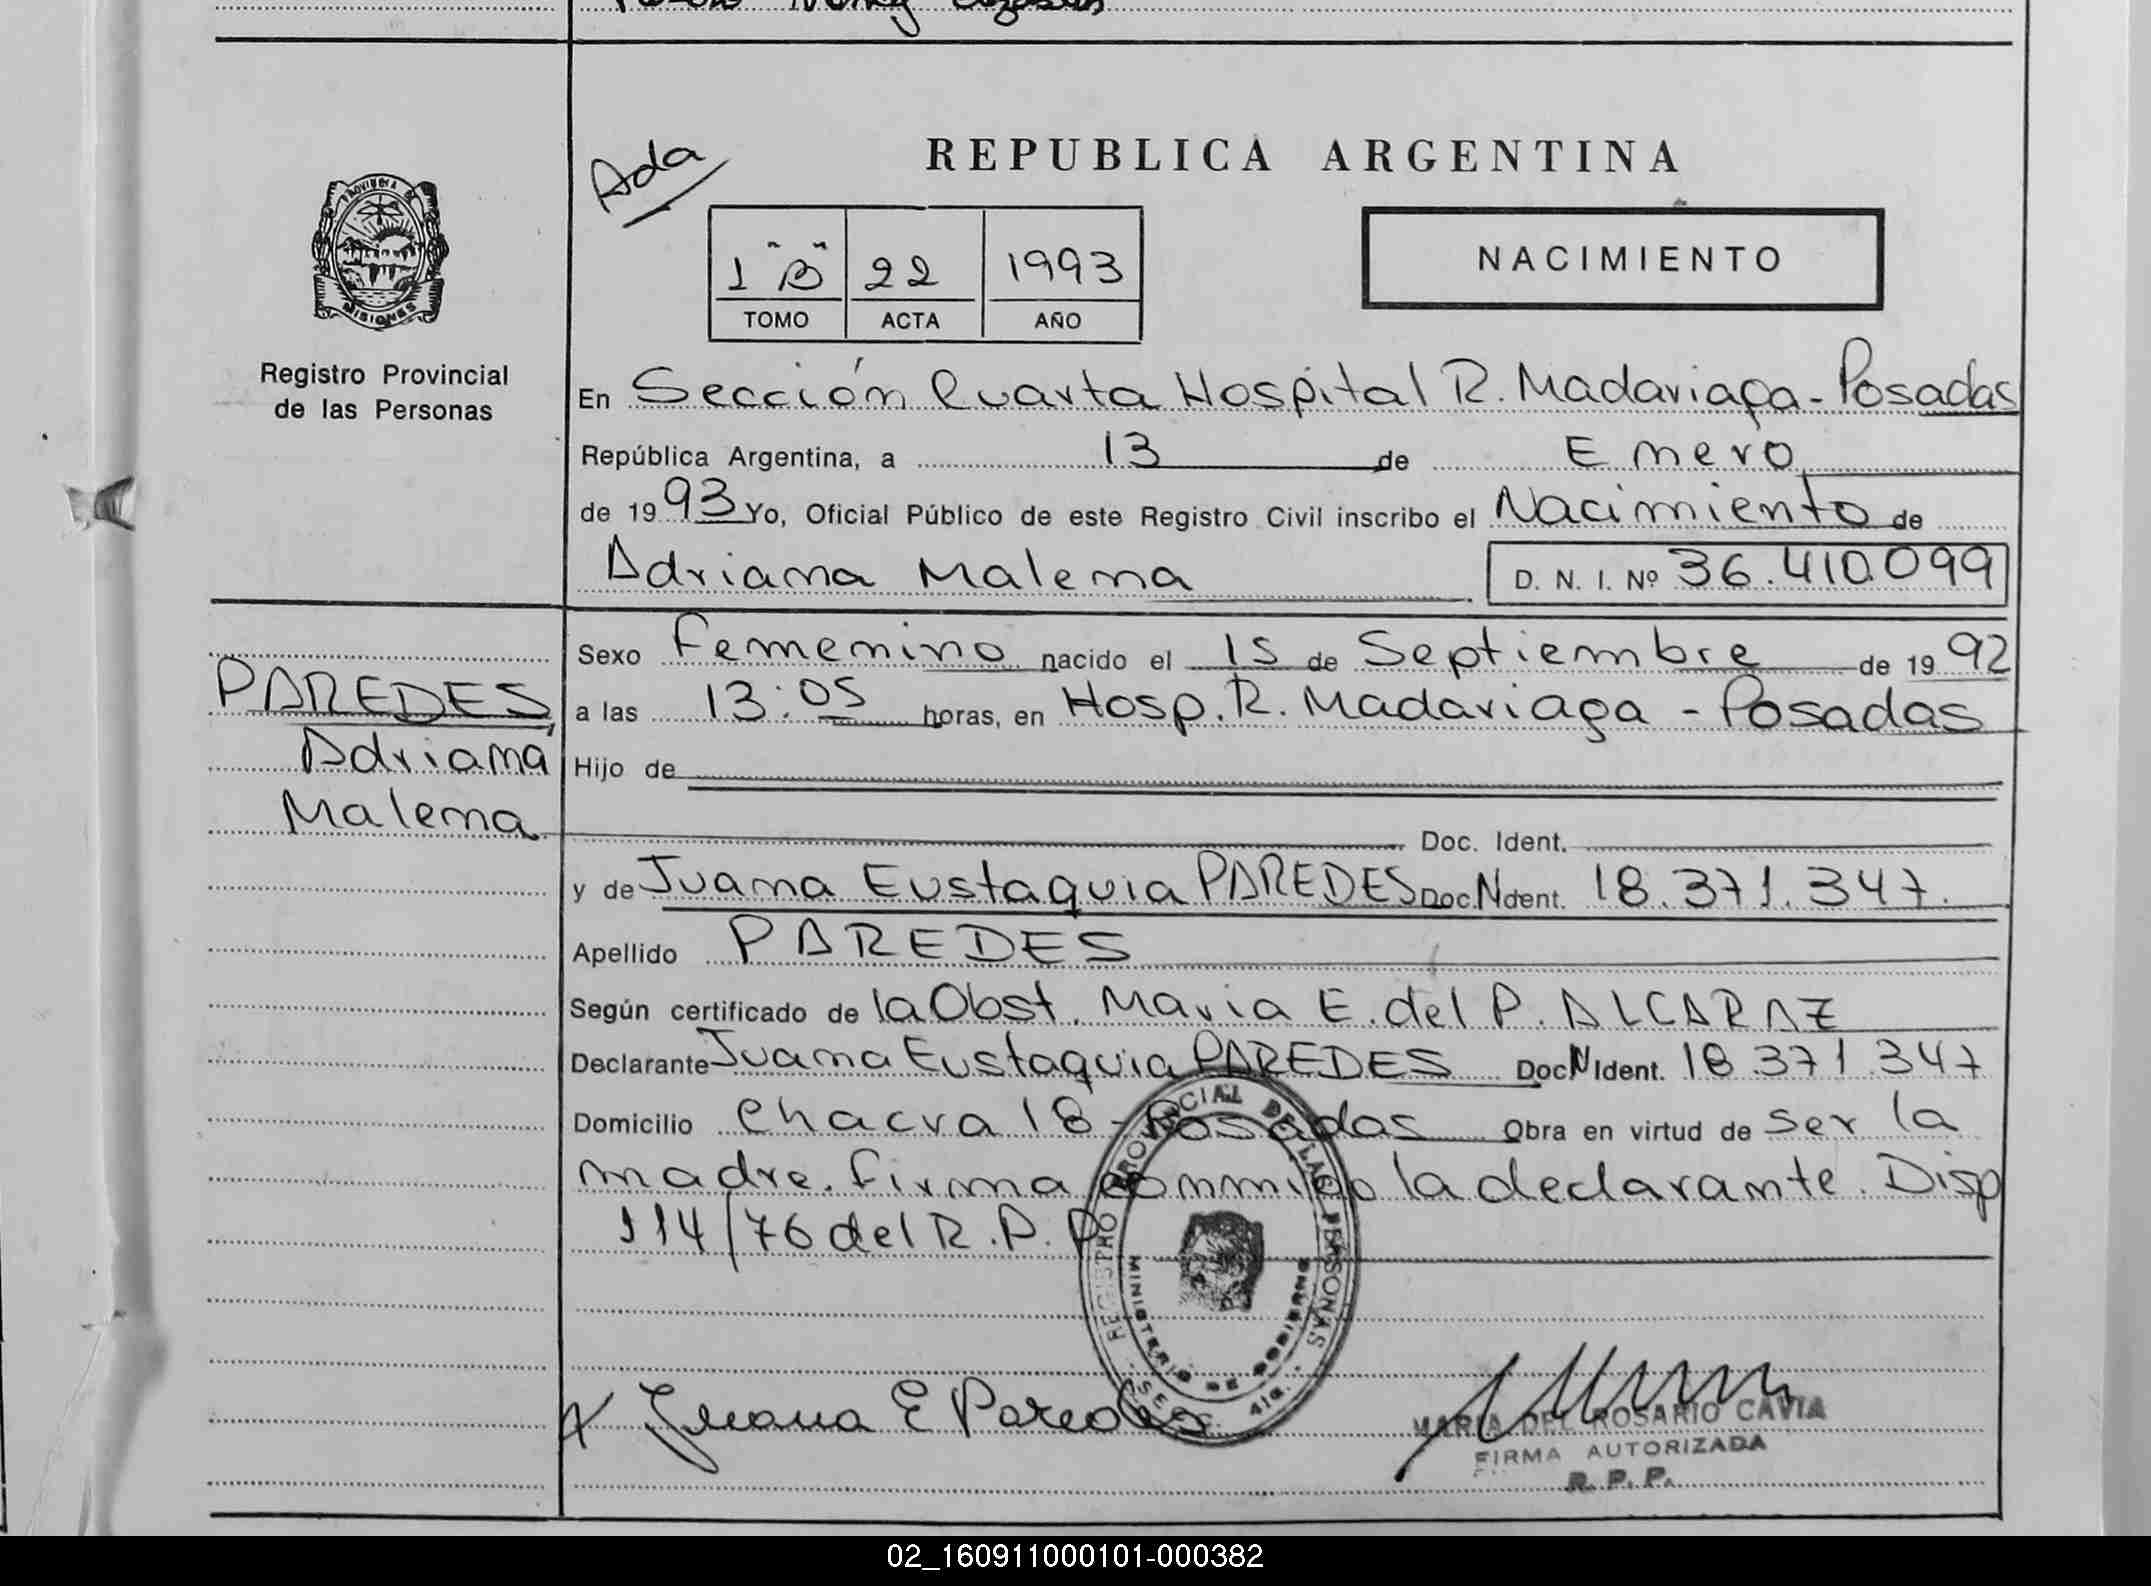 Ada
REPUBLICA ARGENTINA
NACIMIENTO
1 "B" 22 1993
TOMO ACTA AÑO
PROVINCIA DE
MISIONES
Registro Provincial
de las Personas
En Sección Cuarta Hospital R. Madariaga - Posadas
República Argentina, a 13 de Enero
de 1993 Yo, Oficial Público de este Registro Civil inscribo el Nacimiento de
Adriana Malena D. N. I. Nº 36.410.099
Sexo Femenino nacido el 15 de Septiembre de 1992
PAREDES,
a las 13:05 horas, en Hosp. R. Madariaga - Posadas
Adriana
Hijo de
Malena
Doc. Ident.
y de Juana Eustaquia PAREDES Doc. Ident. 18.371.347.
Apellido PAREDES
Según certificado de la Obst. Maria E. del P. ALCARAZ
Declarante Juana Eustaquia PAREDES Doc. Ident. 18.371.347
Domicilio Chacra 18 - Posadas Obra en virtud de ser la
madre. Firma conmigo la declarante. Disp
114/76 del R.P.P.
REGISTRO PROVINCIAL DE LAS PERSONAS
MINISTERIO DE GOBIERNO
Juana E Paredes
MARIA DEL ROSARIO CAVIA
FIRMA AUTORIZADA
R. P. P.
02_160911000101-000382